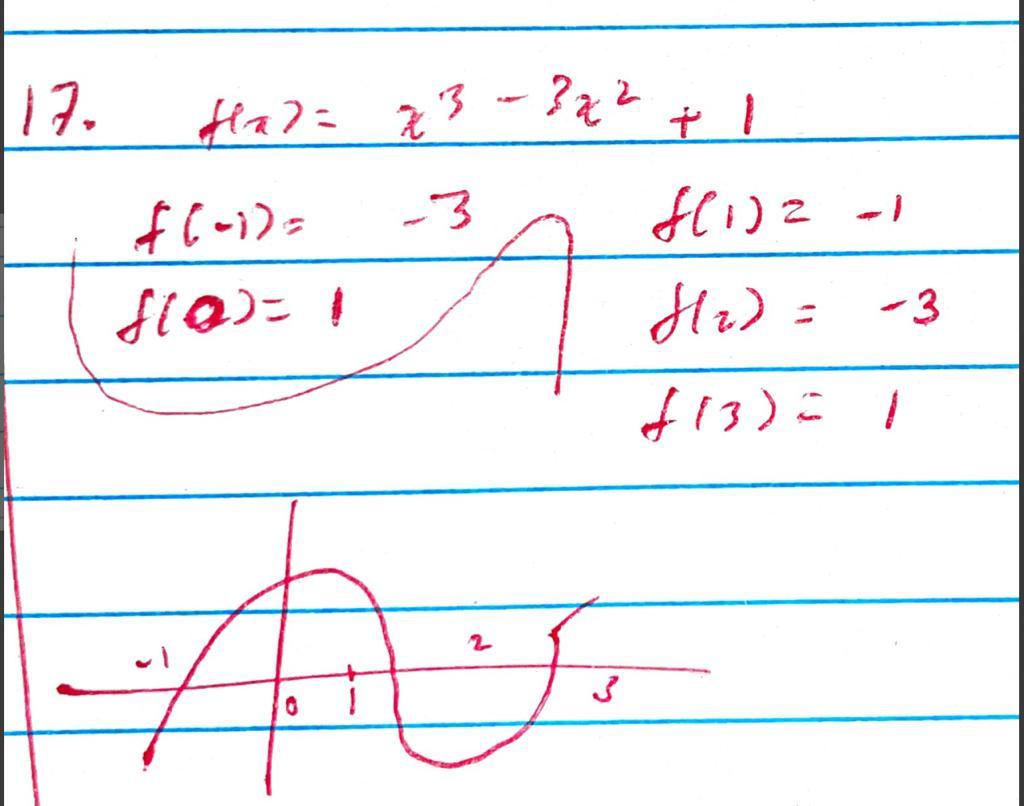 17. f(x) = x³ - 3x² + 1
f(-1) = -3 f(1) = -1
f(0) = 1 f(2) = -3
f(3) = 1
-1 2
0 1 3